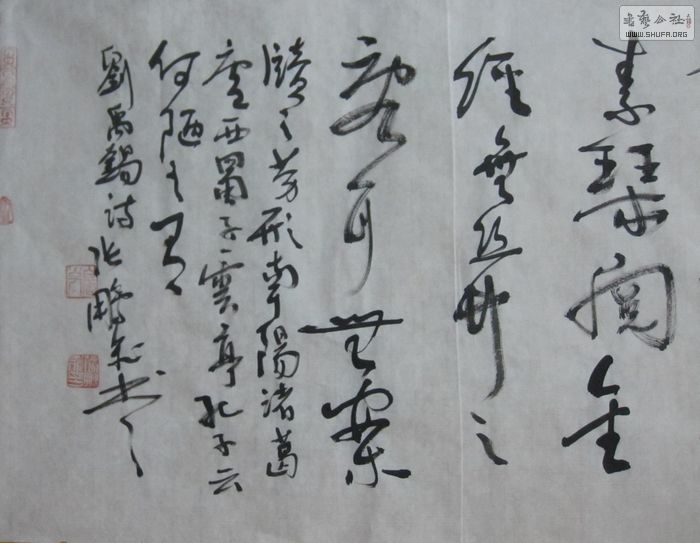 素琴閱金
經無絲竹之
亂耳無案
牘之勞形南陽諸葛
廬西蜀子雲亭孔子云
何陋之有
劉禹錫诗张鵬书
書藝公社
WWW.SHUFA.ORG